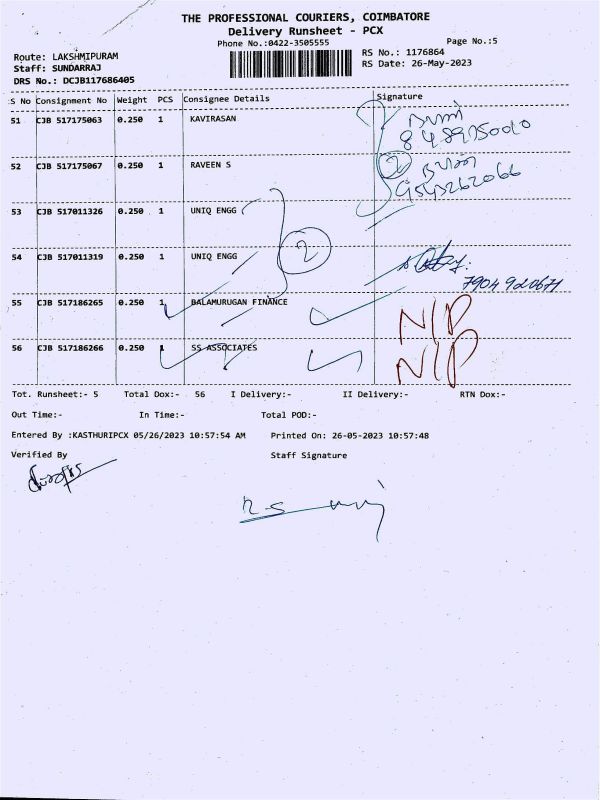 THE PROFESSIONAL COURIERS, COIMBATORE
Delivery Runsheet - PCX
Phone No.:0422-3505555
Page No.:5
Route: LAKSHMIPURAM
RS No.: 1176864
Staff: SUNDARRAJ
RS Date: 26-May-2023
DRS No.: DCJB117686405
S No Consignment No Weight PCS Consignee Details Signature
51 CJB 517175063 0.250 1 KAVIRASAN
52 CJB 517175067 0.250 1 RAVEEN S
2
53 CJB 517011326 0.250 1 UNIQ ENGG
2
54 CJB 517011319 0.250 1 UNIQ ENGG
55 CJB 517186265 0.250 1 BALAMURUGAN FINANCE
N/P
56 CJB 517186266 0.250 1 SS ASSOCIATES
N/P
Tot. Runsheet:- 5 Total Dox:- 56 I Delivery:- II Delivery:- RTN Dox:-
Out Time:- In Time:- Total POD:-
Entered By :KASTHURIPCX 05/26/2023 10:57:54 AM Printed On: 26-05-2023 10:57:48
Verified By Staff Signature